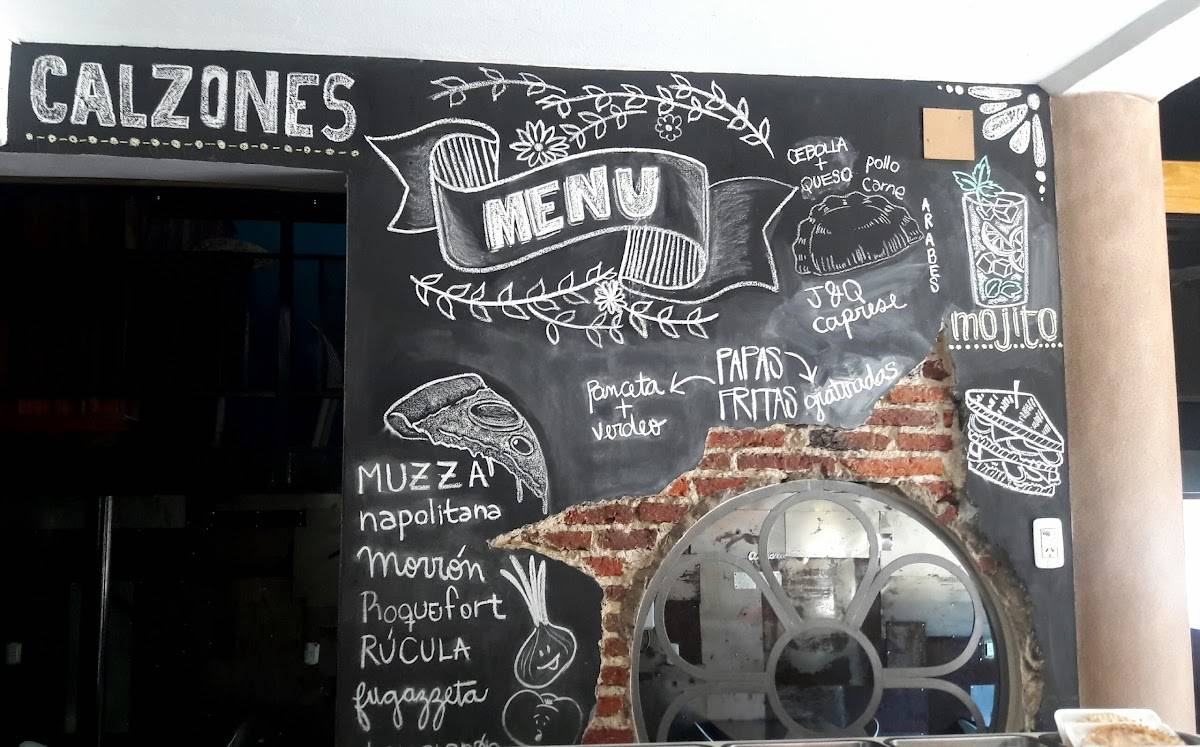 CALZONES
MENU
CEBOLLA
+
QUESO
pollo
Carne
ARABES
J&Q
caprese
mojito
PAPAS
FRITAS
Panceta
+
verdeo
gratinadas
MUZZA
napolitana
Morrón
Roquefort
RÚCULA
fugazzeta